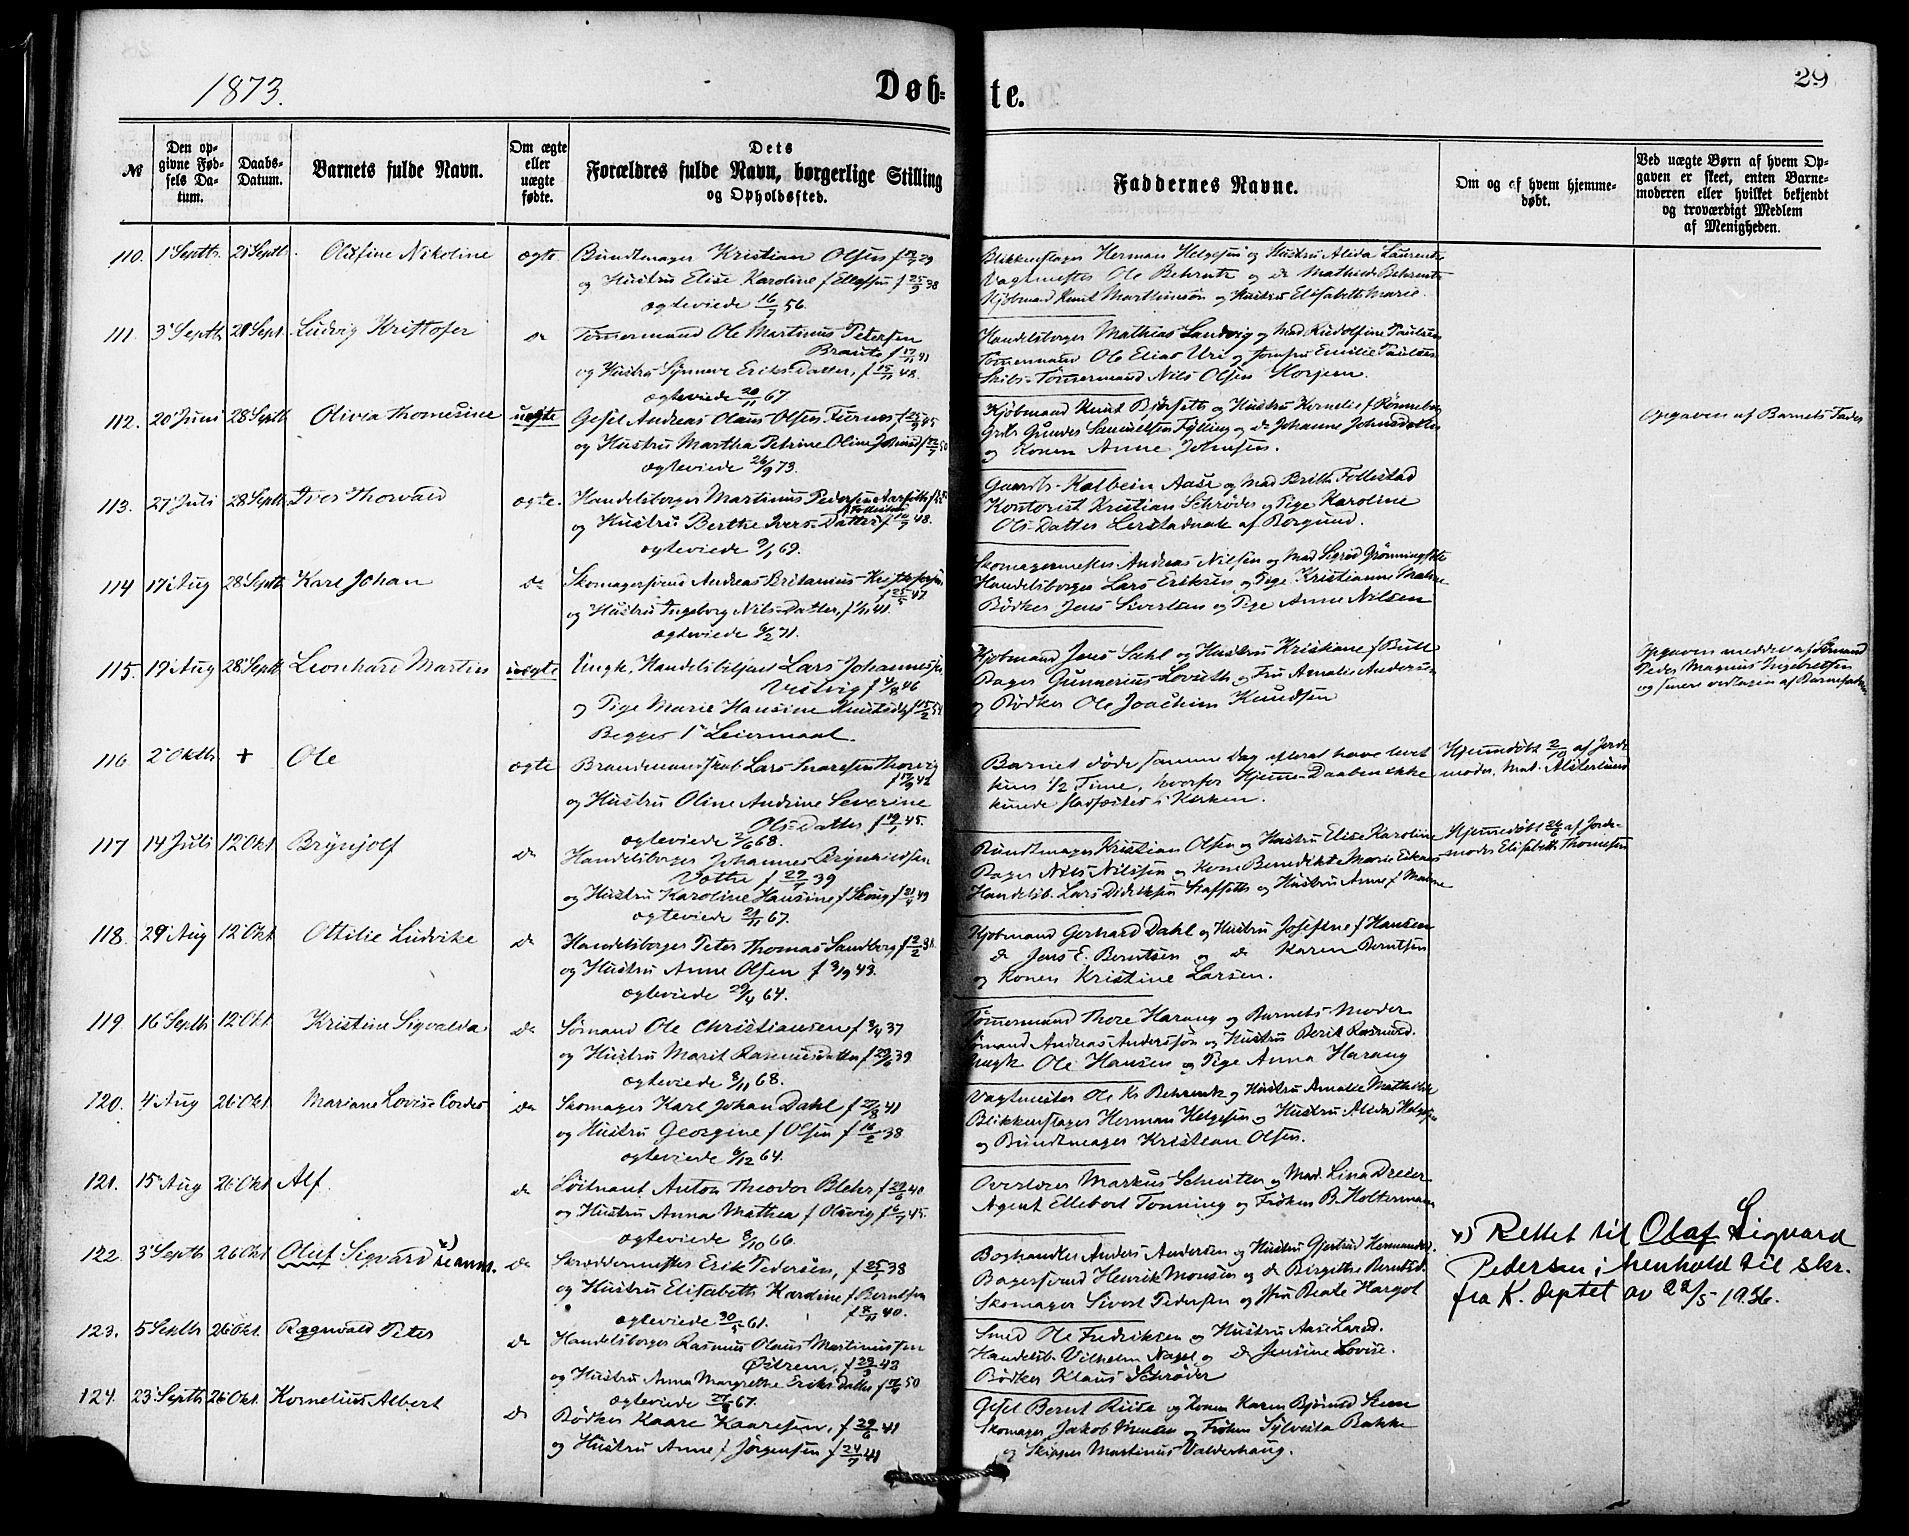 1873.
Døb-
te.
29
№
Den op-
givne Fød-
sels Da-
tum.
Daabs-
Datum.
Barnets fulde Navn.
Om ægte
eller
uægte
fødte.
Dets
Forældres fulde Navn, borgerlige Stilling
og Opholdssted.
Faddernes Navne.
Om og af hvem hjemme-
døbt.
Ved uægte Børn af hvem Op-
gaven er skeet, enten Barne-
moderen eller hvilket bekjendt
og troværdigt Medlem
af Menigheden.
110. 1 Septb. 21 Septb. Olufine Nikoline ægte Bundtmager Kristian Olsen
og Hustru Elise Karoline f Ellefsen f 25/9 38
ægteviede 16/7 56.
Blikkenslager Herman Helgesen og Hustru Alida
Vagtmester Ole Behrentz og do Mathilde Behrentz
Kjøbmand Knut Martinson og Hustru Elisabeth Marie.
111. 3 Septb 21 Sept. Ludvig Kristofer do Tømermand Ole Martinus Petersen
Braute f 17/11 41
og Hustru Synneve Eriks Datter, f 15/11 48.
ægteviede 20/11 67
Handelsborger Mathias Landvig og Mad Rudolfine Paulsen
Tømermand Ole Elias Uri og Jomfru Emilie Paulsen
Skibs-Tømermand Nils Olsen Korsen.
112. 20 Juni 28 Septb Olivia Thomesine uægte Gesel Andreas Olaus Olsen f 25/9 45
og Hustru Martha Petrine Oline
ægteviede 26/9 73.
Kjøbmand Knut Bjørseth og Hustru Kornelie f Rønneberg
Gudes Samuelsen Fylling og do Johanne Johnsdatter
og Konen Anne Johnsen.
Opgaven af Barnets Fader
113. 27 Juli 28 Septb Iver Thorvald ægte Handelsborger Martinus Pedersen Aarseth
og Hustru Berthe Ivers-Datter f 10/7 48.
ægteviede 9/1 69.
Gaardb. Kolbein Aase og Mad Brith Follestad
Kontorist Kristian Schrøder og Pige Karoline
Ols-Datter Lerstadnak af Borgund.
114 17 Aug 28 Septb Karl Johan do Skomagersvend Andreas Britanius
f 25/5 47
og Hustru Ingeborg Nils-Datter, 41.
ægteviede 6/2 71.
Skomagermester Andreas Nilsen og Mad Sigrid
Handelsborger Lars Eriksen og Pige Kristianne
Bødker Jens Sivertsen og Pige Anne Nilsen
115. 19 Aug 28 Septb Leonhard Martin uægte Ungk. Handelsbetjent Lars Johannessen
Vestvig f 4/8 46
og Pige Marie Hansine
Begges 1ste Leiermaal.
Kjøbmand Jens Dahl og Hustru Kristiane f Bull
Bager Gunnerius Lovuth og Fru Amalie Andersen
og Bødker Ole Joachim Knudsen
Opgaven meddelt af Sømand
Peder Magnus Ingebretsen
og senere vedtagen af Barnefaderen
116 2 Oktb + Ole ægte Brandmandskab Lars Snaresen Thorvig
f 17/9 42
og Hustru Oline Andrine Severine
Ols-Datter f 19/1 45.
ægteviede 2/6 68.
Barnet døde samme Dag efterat have levet
kun 1/2 Time, hvorfor Hjemme-Daaben ikke
kunde stadfæstes i Kirken.
Hjemmedøbt 2/10 af Jorde-
moder, Mad. Alsterlund
117 14 Juli 12 Okt Brynjolf do Handelsborger Johannes Brynildsen
Vatne f 29/7 39
og Hustru Karoline Hansine f Skeng f 21/4 49
ægteviede 24/11 67.
Bundtmager Kristian Olsen og Hustru Elise Karoline
Bager Nils Nilssen og Kone Benedikte Marie
Handelsb. Lars Didriksen Hafseth og Hustru Anne f Malene
Hjemmedøbt 26/6 af Jorde-
moder Elisabeth Thomesen
118. 29 Aug 12 Okt Ottilie Ludvike do Handelsborger Peter Thomas Sandberg f 2/2 31.
og Hustru Anne Olsen f 9/10 43.
ægteviede 29/4 64.
Kjøbmand Gerhard Dahl og Hustru Josefine f Hansen
do Jens E. Berntsen og do Karen Berntsen
og Konen Kristine Larsen.
119. 16 Septb 12 Okt Kristine Sigvalda do Sømand Ole Christiansen f 3/4 37
og Hustru Marit Rasmusdatter f 29/6 39
ægteviede 8/11 68.
Tømermand Thore Harang og Barnets-Moder
Sømand Andreas Anderssøn og Hustru Berit Rasmusd.
Ungk Ole Hansen og Pige Anna Harang
120. 4 Aug 26 Okt Mariane Lovise Cordes do Skomager Karl Johan Dahl f 27/8 41
og Hustru Georgine f Olsen f 16/2 38
ægteviede 6/12 64.
Vagtmester Ole Kr Behrentz og Hustru Amalie Mathilde
Blikkenslager Herman Helgesen og Hustru Alida Helgesen
og Bundtmager Kristian Olsen.
121. 15 Aug 26 Okt Alf do Løitnant Anton Theodor Blehr f 29/6 40
og Hustru Anna Mathea f Olsvig f 6/7 45.
ægteviede 8/10 66.
Overlærer Markus Schnitler og Mad. Lina Dreier
Agent Ellebort Tonning og Frøken B. Holtermann
122. 3 Septb 26 Okt Oluf Sigvard x) se anm. do Skræddermester Erik Pedersen, f 25/1 38
og Hustru Elisabeth Kardine f Berntsen
f 8/11 40.
ægteviede 30/5 61.
Boghandler Anders Andersen og Hustru Gjertrud Hermandsd.
Bagersvend Henrik Monsen og do Birgithe Berntsd.
Skomager Sivert Pedersen og Fru Beate Hargot
x) Rettet til Olaf Sigvard
Pedersen i henhold til skr.
fra K. deptet av 22/5 1936.
123. 5 Septb 26 Okt. Ragnvald Peter do Handelsborger Rasmus Olaus Martinussen
Østrem, f 29/3 43
og Hustru Anna Margrethe Eriks Datter f 17/9 50
ægteviede 67.
Smed Ole Fredriksen og Hustru Aase Larsd.
Handelsb. Vilhelm Nagel og do Jensine Lovise.
Bødker Klaus Schrøder
124. 23 Septb 26 Okt. Kornelius Albert do Bødker Kaare Kaaresen, f 29/6 41
og Hustru Anne f Jørgensen f 24/7 41
Gesel Bernt Ruud og Konen Karen
Skomager Jakob og Frøken Sylvesta Bakke
og Skipper Martinus Valderhaug.